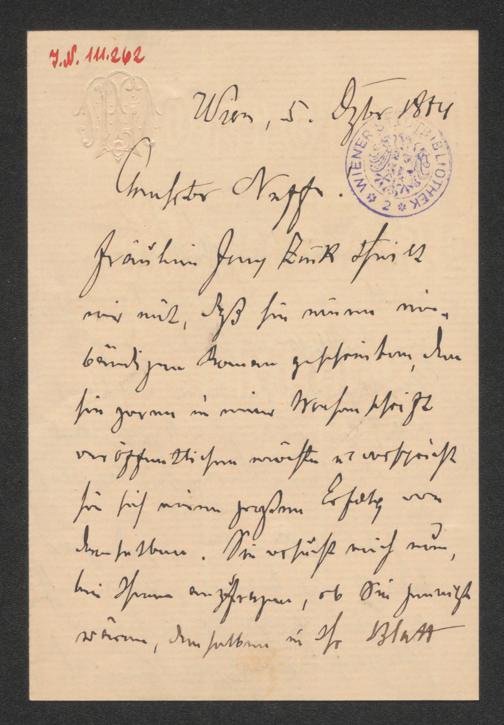 J.N. 111.262
Wien, 5. Dzbr 1884
WIENER STADTBIBLIOTHEK 2
Fräulein Jenny Zink theilt
mir mit, daß sie einen ein-
bändigen Roman geschrieben, den
sie gerne in einer Wochenschrift
veröffentlichen möchte u verspricht
sie sich einen großen Erfolg von
demselben. Sie ersucht mich nun,
bei Ihnen anzufragen, ob Sie geneigt
wären, denselben in Ihr Blatt